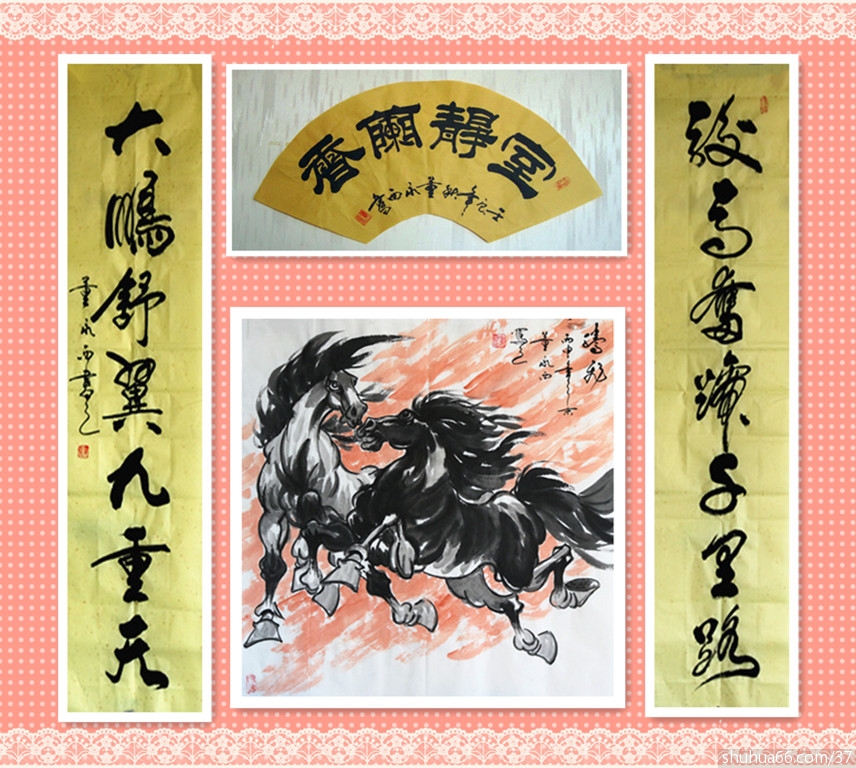 駿馬奮蹄千里路
室靜蘭香
壬辰年秋董永西書
騰飛
丙申年
董永西
寫之
大鵬舒翼九重天
董永西書之
shuhua66.com/37